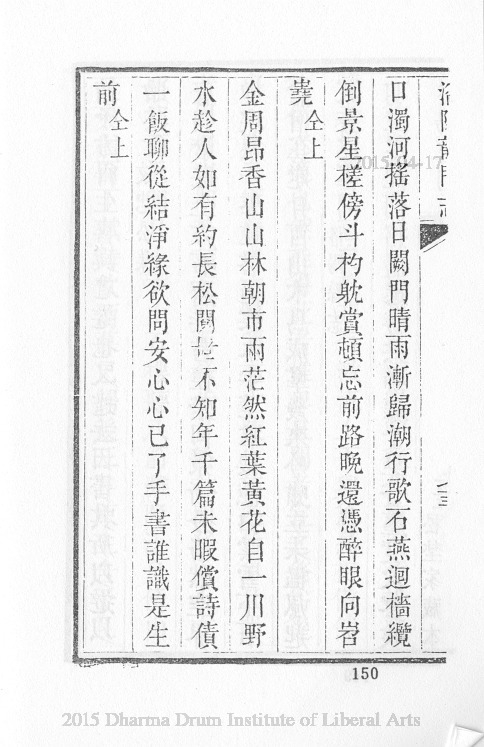 洛陽龍門志
口濁河搖落日闕門晴雨漸歸潮行歌石燕迴檣纜
倒景星槎傍斗杓躭賞頓忘前路晚還憑醉眼向岧
嶤 仝上
金周昂香山山林朝市兩茫然紅葉黃花自一川野
水趁人如有約長松閱世不知年千篇未暇償詩債
一飯聊從結淨緣欲問安心心已了手書誰識是生
前 仝上
2015-04-17
150
2015 Dharma Drum Institute of Liberal Arts